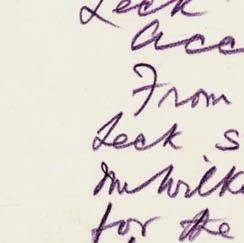 Leck
Acc
From
Leck s
Mr Wilk
for the